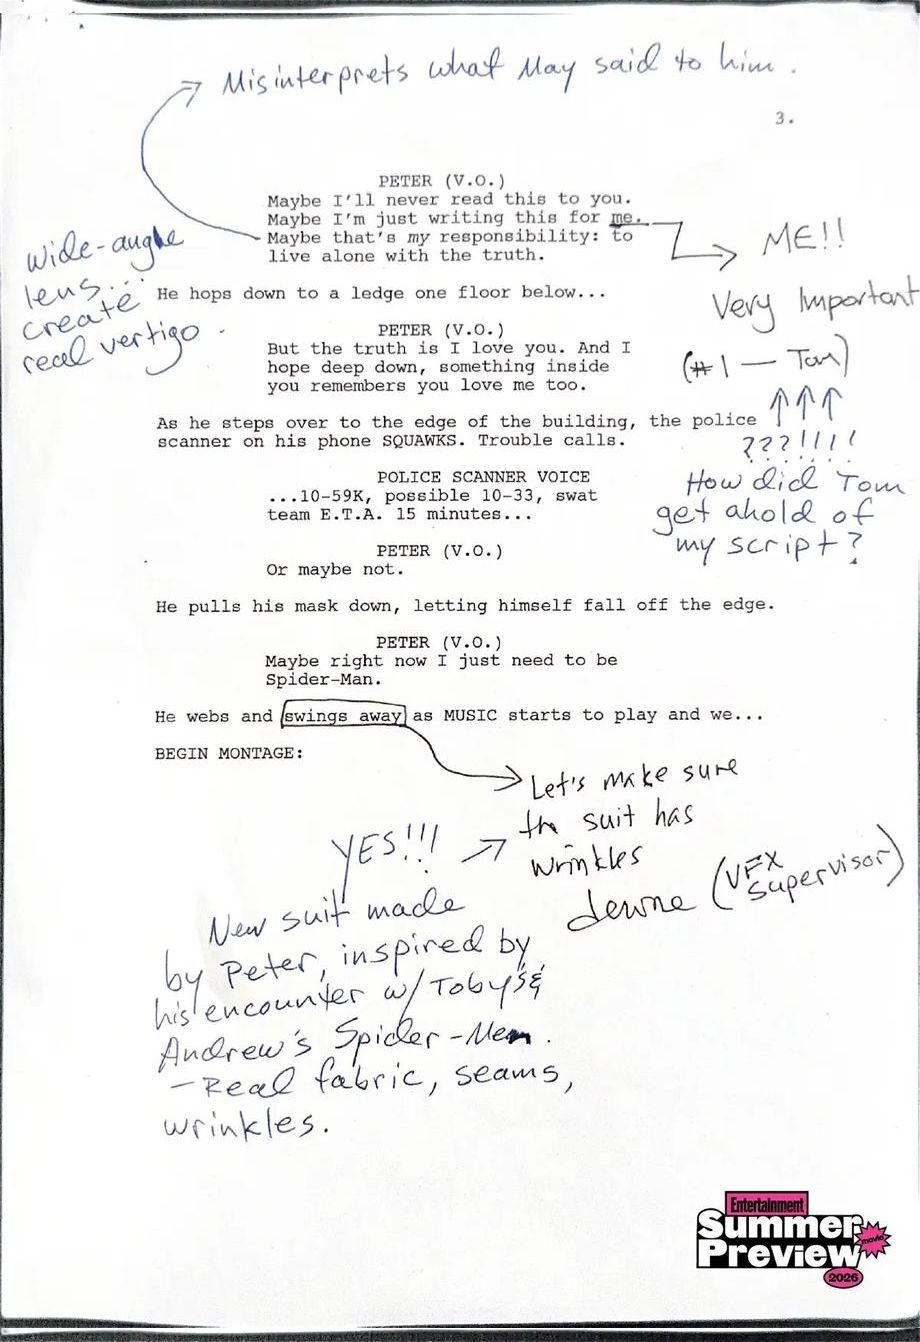 Misinterprets what May said to him.
3.
PETER (V.O.)
Maybe I'll never read this to you.
Maybe I'm just writing this for me.
Maybe that's my responsibility: to
live alone with the truth.
wide-angle
lens...
create
real vertigo.
ME!!
Very Important
(#1 — Tom)
???!!!!
How did Tom
get ahold of
my script?
He hops down to a ledge one floor below...
PETER (V.O.)
But the truth is I love you. And I
hope deep down, something inside
you remembers you love me too.
As he steps over to the edge of the building, the police
scanner on his phone SQUAWKS. Trouble calls.
POLICE SCANNER VOICE
...10-59K, possible 10-33, swat
team E.T.A. 15 minutes...
PETER (V.O.)
Or maybe not.
He pulls his mask down, letting himself fall off the edge.
PETER (V.O.)
Maybe right now I just need to be
Spider-Man.
He webs and swings away as MUSIC starts to play and we...
BEGIN MONTAGE:
Let's make sure
the suit has
wrinkles
(VFX
Supervisor)
YES!!!
New suit made
by Peter, inspired by
his encounter w/ Toby's &
Andrew's Spider-Men.
- Real fabric, seams,
wrinkles.
Entertainment
Summer
movie
Preview
2026